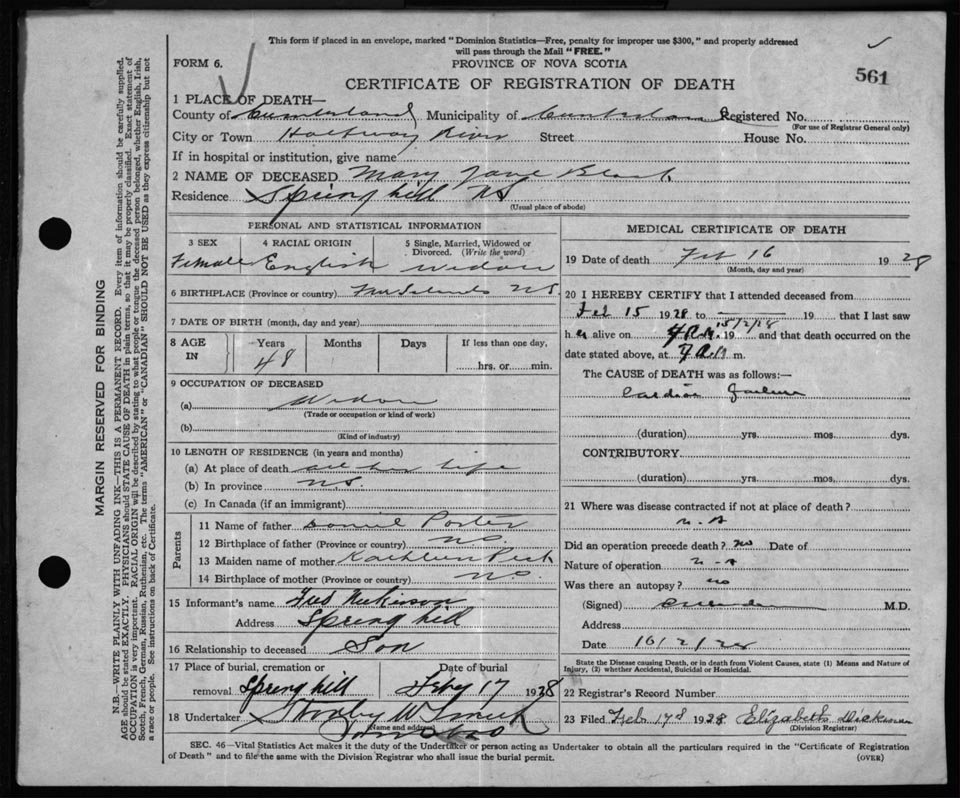 This form if placed in an envelope, marked "Dominion Statistics—Free, penalty for improper use $300," and properly addressed
will pass through the Mail "FREE."
FORM 6.
PROVINCE OF NOVA SCOTIA
561
CERTIFICATE OF REGISTRATION OF DEATH
1 PLACE OF DEATH—
County of Cumberland Municipality of Cumberland Registered No.
(For use of Registrar General only)
City or Town Halfway River Street House No.
If in hospital or institution, give name
2 NAME OF DECEASED Mary Jane
Residence Spring hill NS
(Usual place of abode)
PERSONAL AND STATISTICAL INFORMATION
3 SEX 4 RACIAL ORIGIN 5 Single, Married, Widowed or Divorced. (Write the word)
Female English Widow
6 BIRTHPLACE (Province or country) NS.
7 DATE OF BIRTH (month, day and year)
8 AGE IN Years Months Days If less than one day,
48 hrs. or min.
9 OCCUPATION OF DECEASED
(a) Widow
(Trade or occupation or kind of work)
(b)
(Kind of industry)
10 LENGTH OF RESIDENCE (in years and months)
(a) At place of death all her life
(b) In province N.S.
(c) In Canada (if an immigrant)
Parents
11 Name of father Daniel Porter
12 Birthplace of father (Province or country) NS.
13 Maiden name of mother Kathleen
14 Birthplace of mother (Province or country) NS.
15 Informant's name
Address Spring hill
16 Relationship to deceased Son
17 Place of burial, cremation or removal Spring hill Date of burial Feby 17 1928
18 Undertaker
(Name and address)
MEDICAL CERTIFICATE OF DEATH
19 Date of death Feb 16 1928
(Month, day and year)
20 I HEREBY CERTIFY that I attended deceased from
Feb 15 1928 to 19 that I last saw
15/2/28
h er alive on 19 and that death occurred on the
date stated above, at 7 A.M m.
The CAUSE of DEATH was as follows:—
Cardiac failure
(duration) yrs. mos. dys.
CONTRIBUTORY.
(duration) yrs. mos. dys.
21 Where was disease contracted if not at place of death?
N.A
Did an operation precede death? No Date of
Nature of operation N-A
Was there an autopsy? No
(Signed) M.D.
Address
Date 16/2/28
State the Disease causing Death, or in death from Violent Causes, state (1) Means and Nature of
Injury, (2) whether Accidental, Suicidal or Homicidal.
22 Registrar's Record Number
23 Filed Feb 17 1928 Elizabeth
(Division Registrar)
SEC. 46—Vital Statistics Act makes it the duty of the Undertaker or person acting as Undertaker to obtain all the particulars required in the "Certificate of Registration
of Death" and to file the same with the Division Registrar who shall issue the burial permit.
(OVER)
MARGIN RESERVED FOR BINDING
N.B.—WRITE PLAINLY WITH UNFADING INK—THIS IS A PERMANENT RECORD. Every item of information should be carefully supplied.
AGE should be stated EXACTLY. PHYSICIANS should STATE CAUSE OF DEATH in plain terms, so that it may be properly classified. Exact statement of
OCCUPATION is very important. RACIAL ORIGIN will be described by stating to what people or tongue the deceased person belonged, whether English, Irish,
Scotch, French, German, Russian, Ruthenian, etc. The terms "AMERICAN" or "CANADIAN" SHOULD NOT BE USED as they express citizenship but not
a race or people. See instructions on back of Certificate.